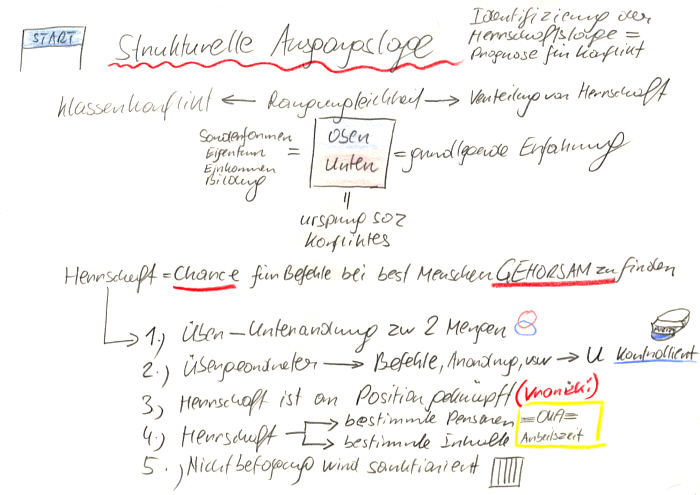 START
Strukturelle Ausgangslage
Identifizierung der
Herrschaftsträger =
Prognose für Konflikt
Klassenkonflikt ← Rangungleichheit → Verteilung von Herrschaft
Sonderformen
Eigentum
Einkommen
Bildung
=
Oben
Unten
= grundlegende Erfahrung
=
Ursprung soz
Konfliktes
Herrschaft = Chance für Befehle bei best Menschen GEHORSAM zu finden
1.) Über-Unterordnung zw 2 Mengen
2.) Übergeordneter → Befehle, Anordng, usw → U kontrolliert
3.) Herrschaft ist an Position geknüpft
4.) Herrschaft → bestimmte Personen
→ bestimmte Inhalte
Arbeitszeit
5.) Nichtbefolgung wird sanktioniert